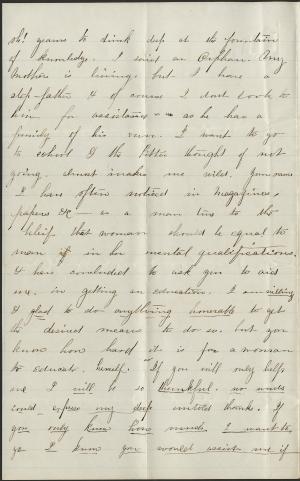 oh! yearns to drink deep at the fountain
of knowledge. I am't an Orphan. My
mother is living, but I have a
step-father & of course I dont look to
him for assistance as he has a
family of his own. I want to go
to school & the bitter thought of not
going almost makes me wild. Your name
I have often noticed in magazines,
papers &c — as a man true to the
belief that woman should be equal to the
man in her mental qualifications.
& have concluded to ask you to aid
me in getting an education. I am willing
& glad to do anything honorable to get
the desired means to do so. but you
know how hard it is for a woman
to educate herself. If you will only help
me I will be so thankful. no words
could express my deep untold thanks. If
you only knew how much I want to
go I know you would assist me if